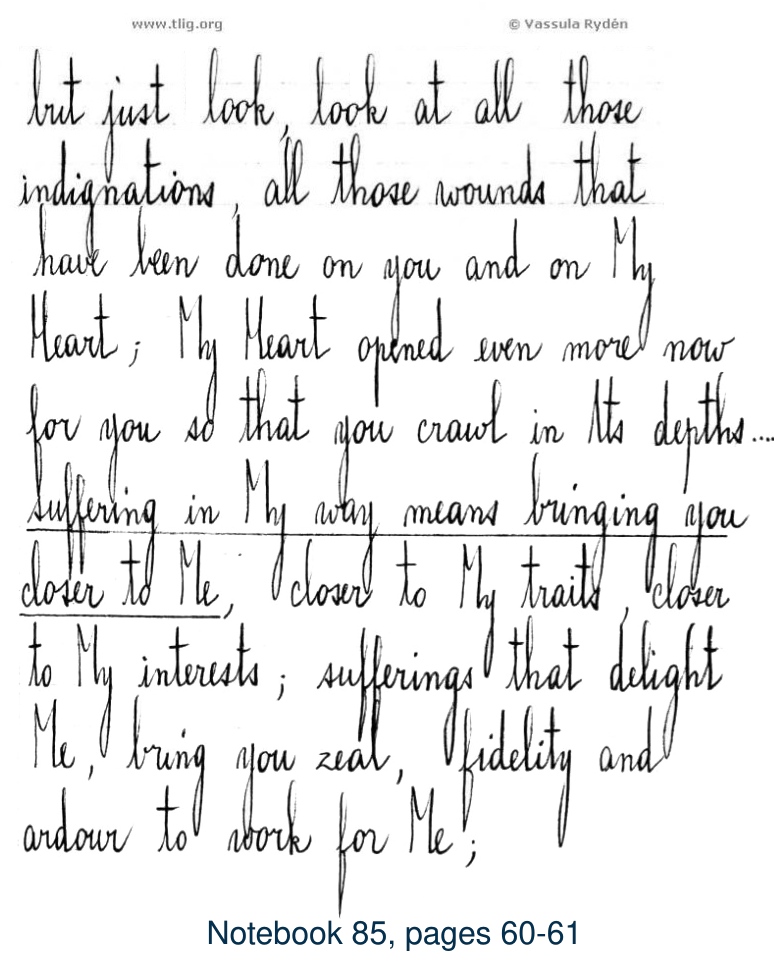 www.tlig.org © Vassula Rydén
but just look, look at all those
indignations, all those wounds that
have been done on you and on My
Heart; My Heart opened even more now
for you so that you crawl in Its depths....
suffering in My way means bringing you
closer to Me, closer to My traits, closer
to My interests; sufferings that delight
Me, bring you zeal, fidelity and
ardour to work for Me;
Notebook 85, pages 60-61